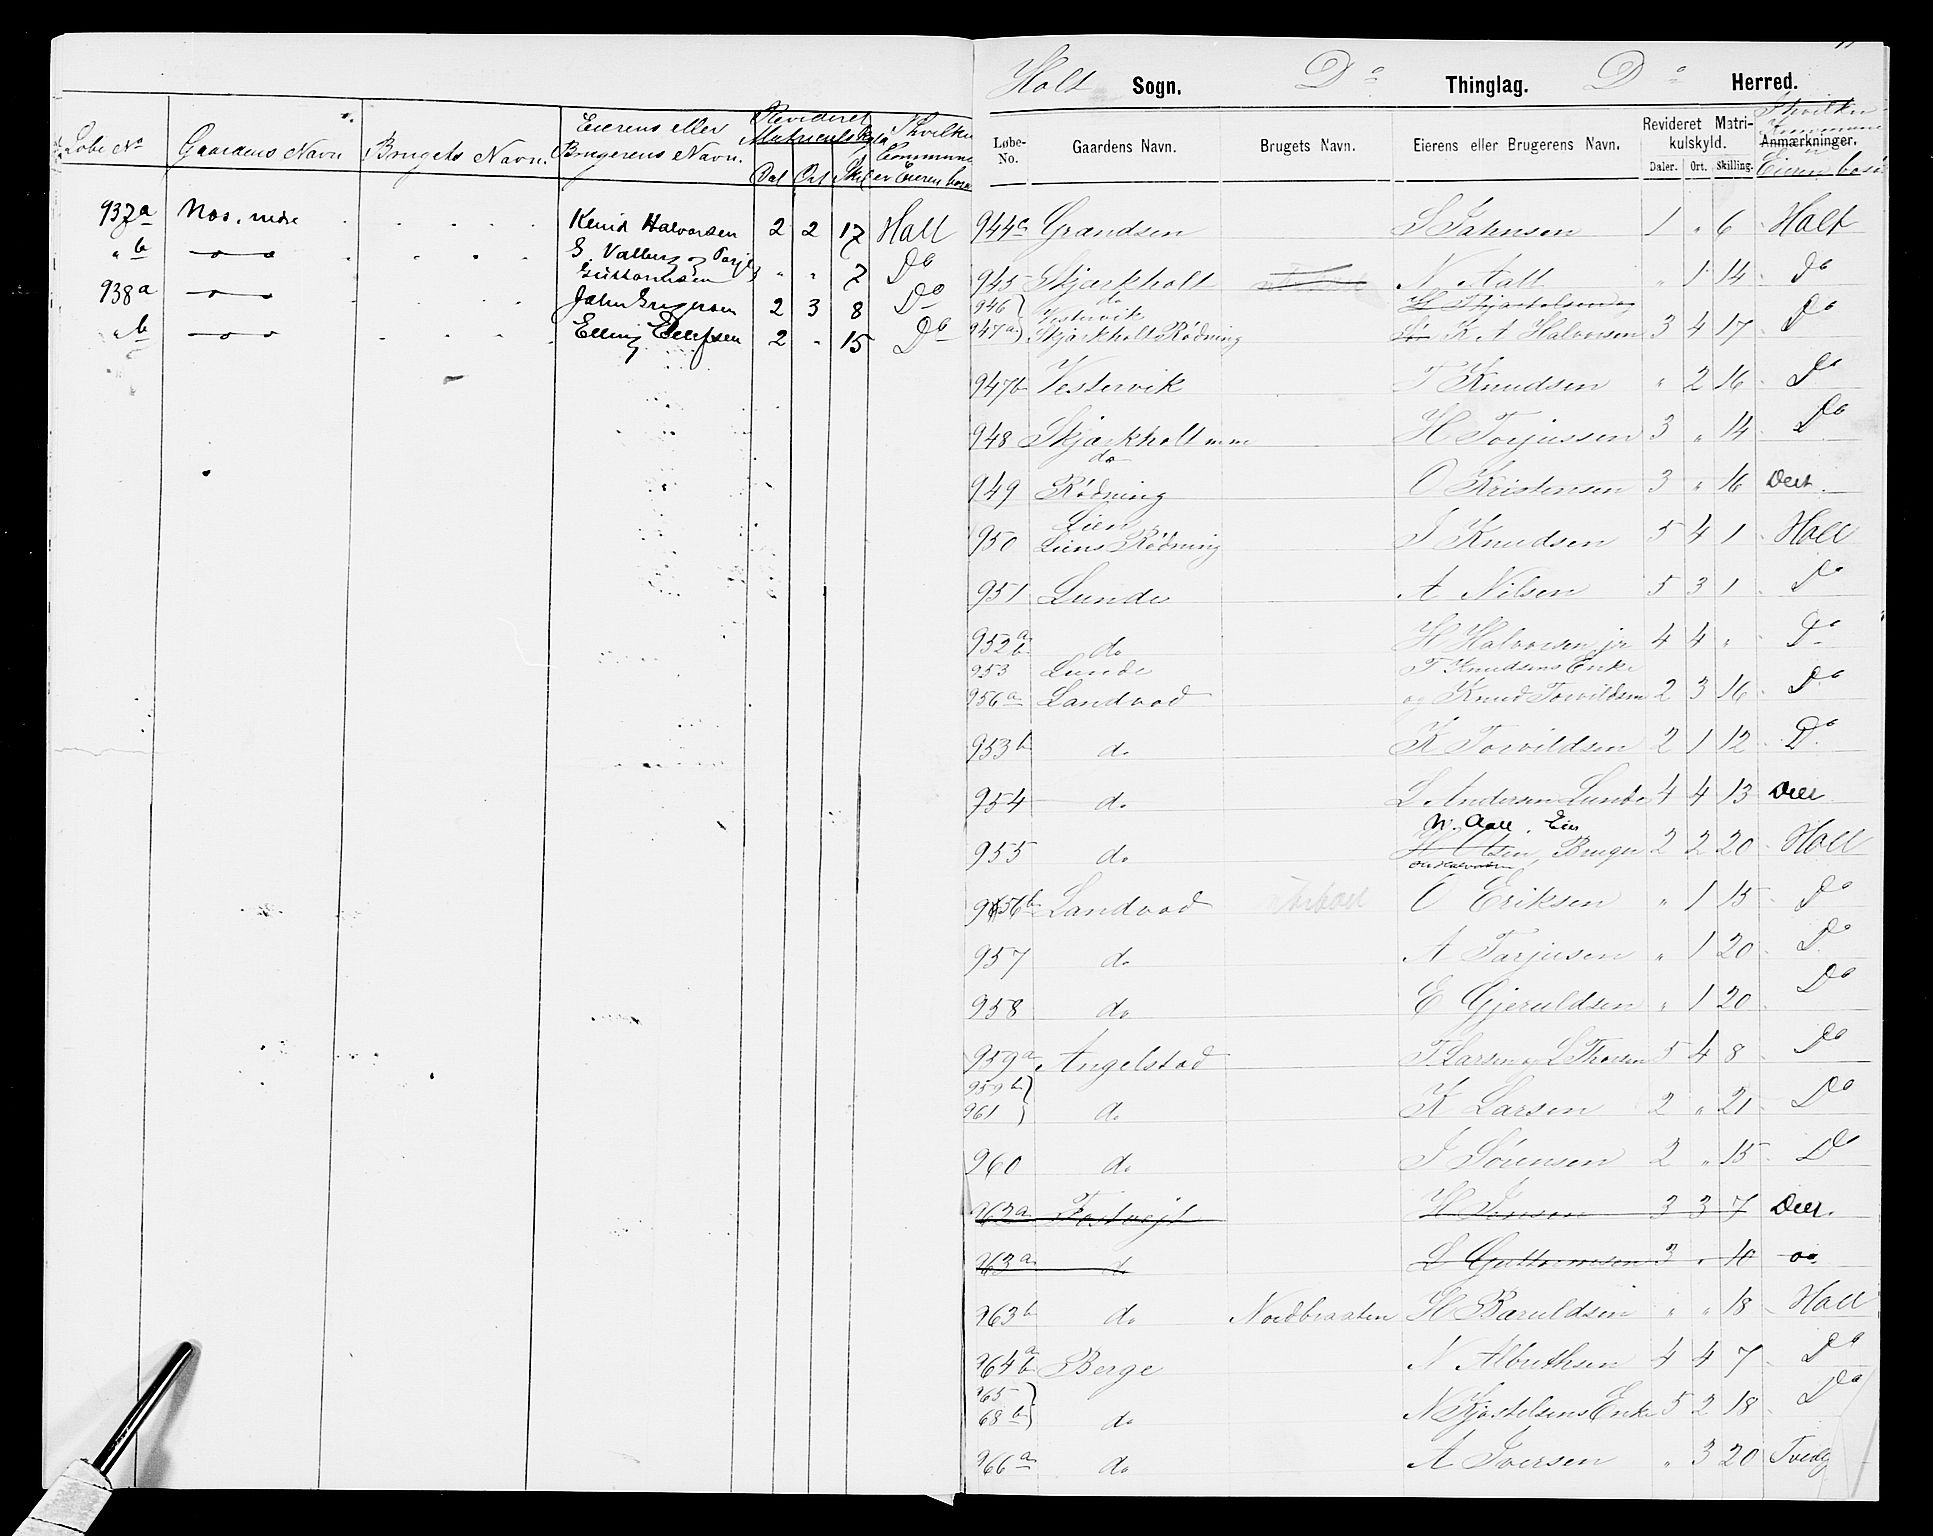 Løbe No Gaardens Navn Brugets Navn. Eierens eller Brugerens Navn. Revideret Matriculskyld Dal Ort Skil I hvilken Commune er Eieren bosa
937a Nos, nedre Knud Halvorsen 2 2 17 Holt
" b — o — o G. Valberg og Tarjei
Guttormsen " " 7 Do
938a — o — o John Gregersen 2 3 8 Do
" b — o — o Elling Ellefsen 2 - 15 Do
Holt Sogn. Do Thinglag. Do Herred.
Løbe-No. Gaardens Navn. Brugets Navn. Eierens eller Brugerens Navn. Revideret Matrikulskyld. Daler. Ort. Skilling. Anmærkninger. I hvilken Kommune Eieren bosa
944a Grandsen S Jahnsen 1 " 6 Holt
945 Skjærkholt N Aall " 1 14 do
946 do Vestervik
947a Skjærkholt Rødning K A Halvorsen 3 4 17 Do
947b Vestervik T Knudsen " 2 16 Do
948 Skjærkholt mm H Torjussen 3 " 14 Do
949 do Rødning O Kristensen 3 " 16 Død
950 Lien
Liens Rødning J Knudsen 5 4 1 Holt
951 Lunde A Nilsen 5 3 1 Do
952 a b do H Halvorsen jr 4 4 " Do
953 Lunde T Knudsens Enke
956a Landvad og Knud Torvildsen 2 3 16 Do
953b do K Torvildsen 2 1 12 Do
954 do L Andersen Lunde 4 4 13
N. Aall, Eier
955 do H Olsen, Bruger 2 2 20 Holt
956b Landvad O Eriksen " 1 15 Do
957 do A Tarjusen " 1 20 Do
958 do E Gjeruldsen " 1 20 Do
959a Angelstad T Larsen og L Thorsen 5 4 8 Do
959b
961 do K Larsen 2 " 21 Do
960 do J Sørensen 2 " 15 Do
962a Fostvejt H Jensen 3 3 7
963a do L Guttormsen 3 " 10 do
963b do Nordbraaten H Baruldsen " " 18 Holt
964 a b Berge N Albrethsen 4 4 7 Do
965
68 b do N Kjøstelsens Enke 5 2 18 Do
966a do A Iversen " 3 20 Tvede